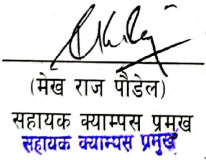 (मेख राज पौडेल)
सहायक क्याम्पस प्रमुख
सहायक क्याम्पस प्रमुख